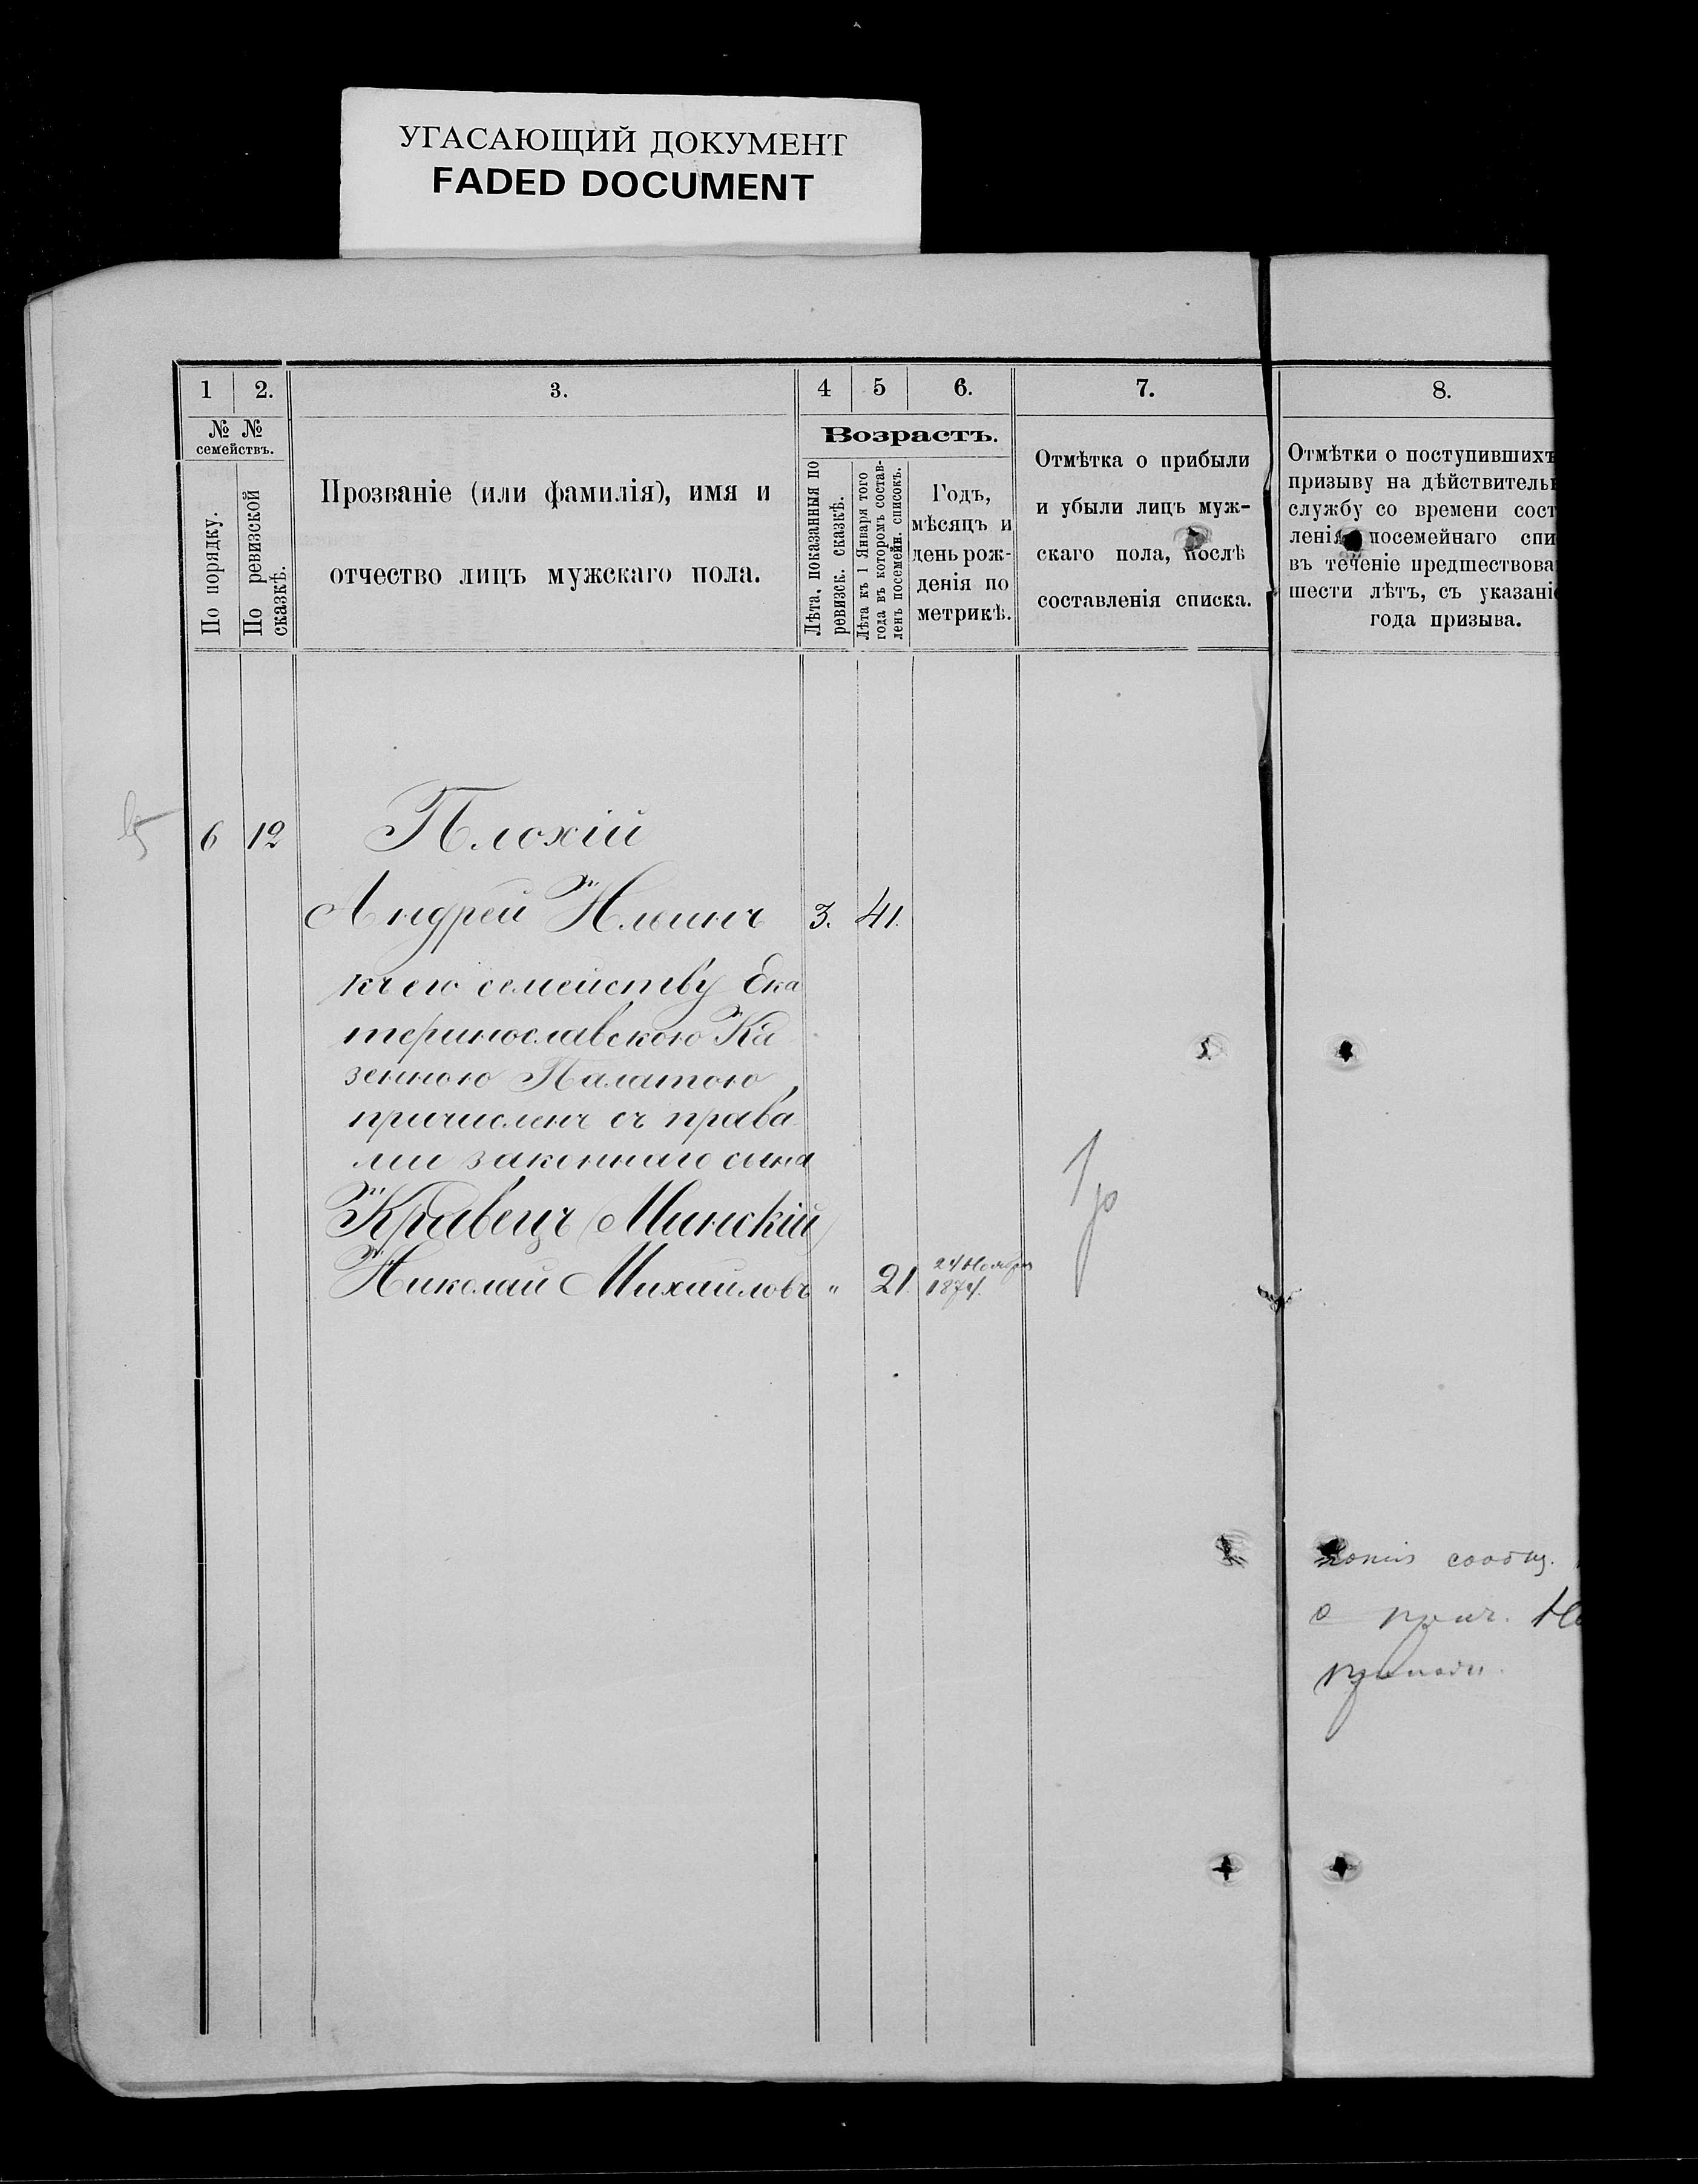 УГАСАЮЩИЙ ДОКУМЕНТ
FADED DOCUMENT
1
2.
3.
4
5
6.
7.
8.
№ №
семействъ.
По порядку.
По ревизской
сказкѣ.
Прозваніе (или фамилія), имя и
отчество лицъ мужскаго пола.
Возрастъ.
Лѣта, показанныя по
ревизск. сказкѣ.
Лѣта къ 1 Января того
года въ которомъ состав-
ленъ посемейн. списокъ.
Годъ,
мѣсяцъ и
день рож-
денія по
метрикѣ.
Отмѣтка о прибыли
и убыли лицъ муж-
скаго пола, послѣ
составленія списка.
Отмѣтки о поступившихъ
призыву на дѣйствительн
службу со времени сост
ленія посемейнаго спи
въ теченіе предшествова
шести лѣтъ, съ указаніе
года призыва.
6 12 Плохій
Андрей Ильинъ 3. 41.
къ его семейству Ека
теринославскою Ка
зенною Палатою
причисленъ съ права
ми законнаго сына
Кравецъ Минскій
Николай Михайловъ " 21. 24 Ноября
1874.
копія сообщ.
о прич.